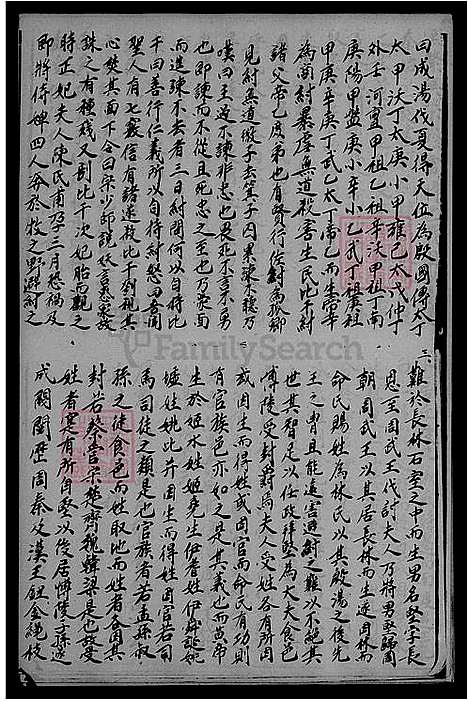 曰成湯伐夏得天位為殷國傳太丁
太甲沃丁太庚小甲雍己太戊仲丁
外壬河亶甲祖乙祖辛沃甲祖丁南
庚陽甲盤庚小辛小乙武丁祖庚祖
甲庚辛庚丁武乙太丁帝乙而生帝辛
為商紂暴虐無道殺害生民比干紂
諸父帝乙庶弟也有賢行信紂為孤卿
見紂無道微子去箕子囚累諫不聽乃
嘆曰主過不諫非忠也畏死不言不勇
也即諫而不從且死忠之至也乃
而進諫不去者三日紂問何以自持比
干曰善行仁義所以自持紂怒曰吾聞
聖人有七竅信有諸遂殺比干剖視其
心
時正妃夫人陳氏甫孕三月恐禍及
即將侍婢四人奔於牧之野避紂之
三
難於長林石室之中而生男名堅字長
恩至周武王伐討夫人乃將男堅歸周
朝周武王以其居長林而生遂因林而
命氏賜姓為林氏以其殷湯之後先
王之冑且能遠害避紂之難以不絕其
世其智足以任政拜堅為大夫食邑
博陵受封爵焉夫人受姓各有所因
或因生而得姓或因官而命氏有功則
有官族邑亦如之是其義也而黃帝
生於姬水姓姬堯生伊耆姓伊舜誕姚
墟姓姚此并因生而得姓因官若司
馬司徒之類是也官族者若孟孫叔
孫之徒食邑而姓取地而姓者各因其
封若蔡管宋楚齊魏韓梁是也故受
姓者寔有所自堅以後居博陵子孫遂
成閥閱歷周秦及漢王
FamilySearch